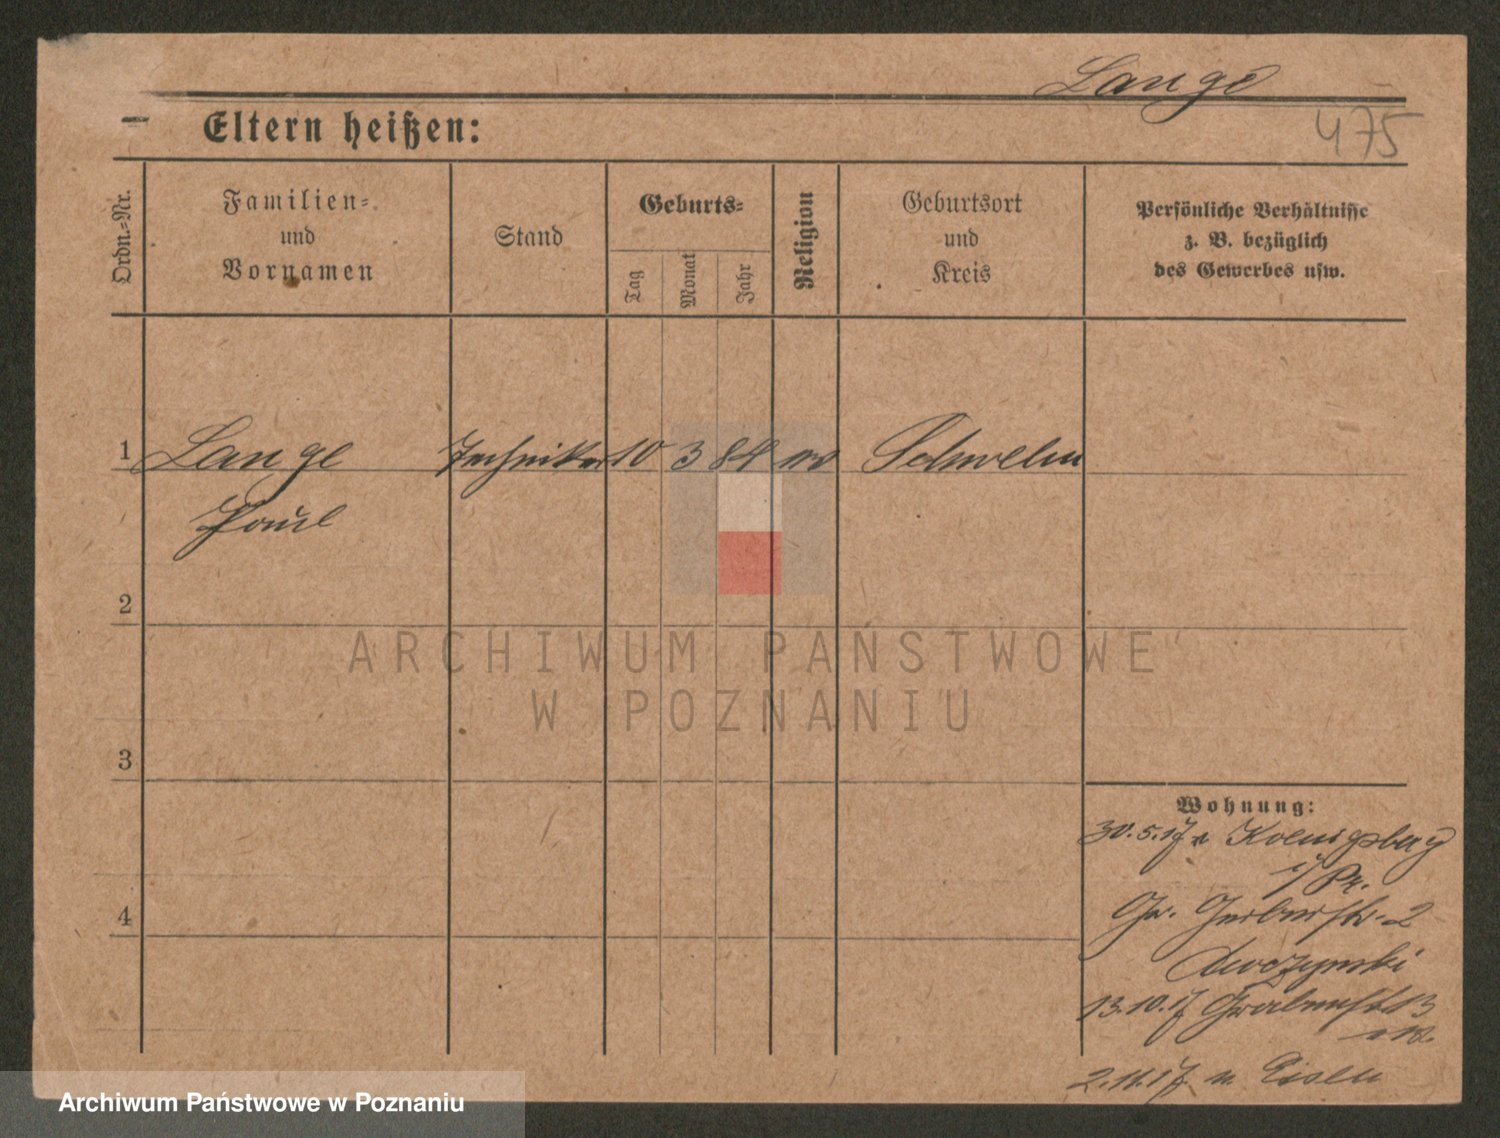 Lange
475
Eltern heißen:
Ordn.-Nr.
Familien-
und
Vornamen
Stand
Geburts-
Tag
Monat
Jahr
Religion
Geburtsort
und
Kreis
Persönliche Verhältnisse
z. B. bezüglich
des Gewerbes usw.
1
Lange
Techniker
10
3
84
ev
Schwelm
Paul
2
ARCHIWUM PAŃSTWOWE
W POZNANIU
3
Wohnung:
30.5.17 v Koenigsberg
i/Pr.
4
Gr. Gerberstr. 2
13.10.17 Grabenst 13
2.11.17 n. Eisen
Archiwum Państwowe w Poznaniu